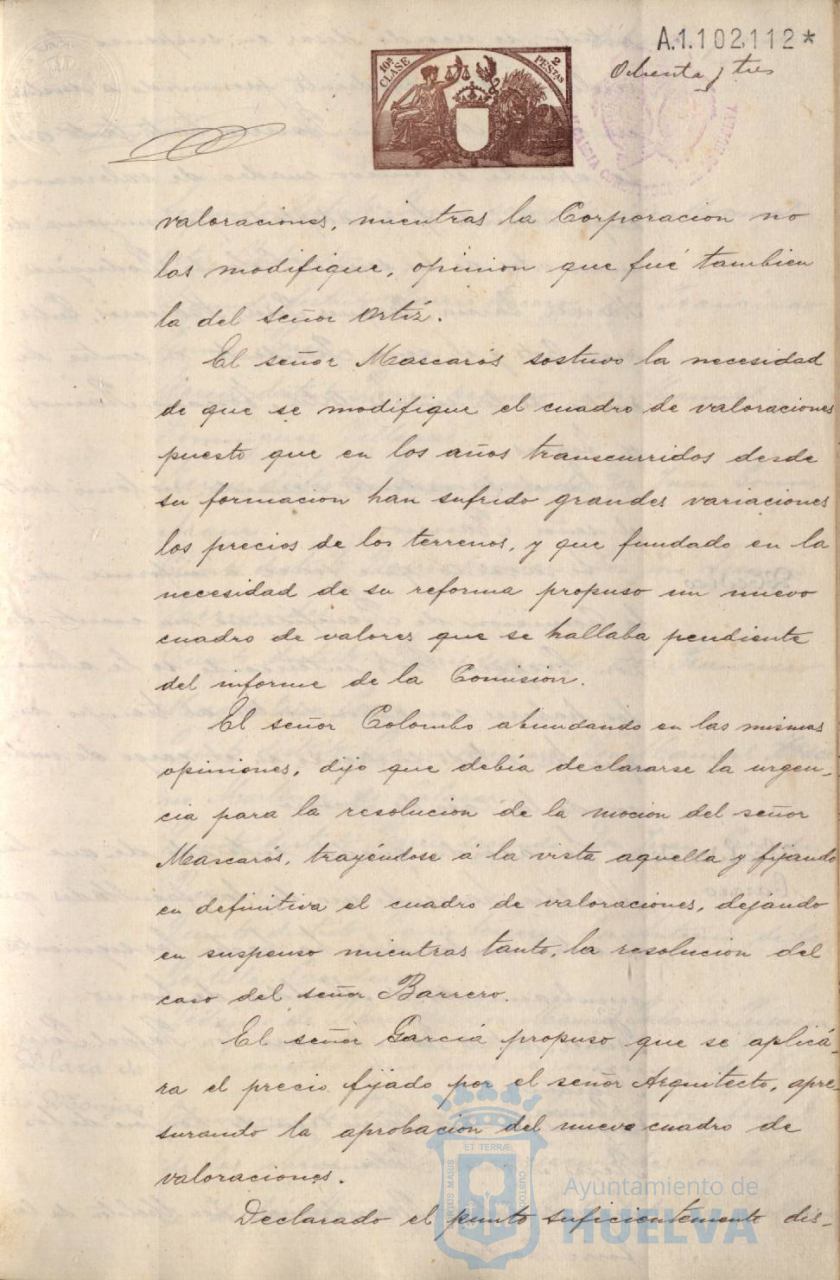 A.1.102,112*
Ochenta y tres
10ª CLASE
2 PESTAS
valoraciones, mientras la Corporacion no
las modifique, opinion que fué tambien
la del señor Ortíz.
El señor Mascarós sostuvo la necesidad
de que se modifique el cuadro de valoraciones
puesto que en los años transcurridos desde
su formacion han sufrido grandes variaciones
los precios de los terrenos, y que fundado en la
necesidad de su reforma propuso un nuevo
cuadro de valores que se hallaba pendiente
del informe de la Comision.
El señor Colombo abundando en las mismas
opiniones, dijo que debía declararse la urgen-
cia para la resolucion de la mocion del señor
Mascarós, trayéndose á la vista aquella y fijando
en definitiva el cuadro de valoraciones, dejando
en suspenso mientras tanto, la resolucion del
caso del señor Barrero.
El señor García propuso que se aplicá-
ra el precio fijado por el señor Arquitecto, apre-
surando la aprobacion del nuevo cuadro de
valoraciones.
Declarado el punto suficientemente dis-
ET TERRÆ
PORTUS MARIS
CUSTODIA
Ayuntamiento de
HUELVA